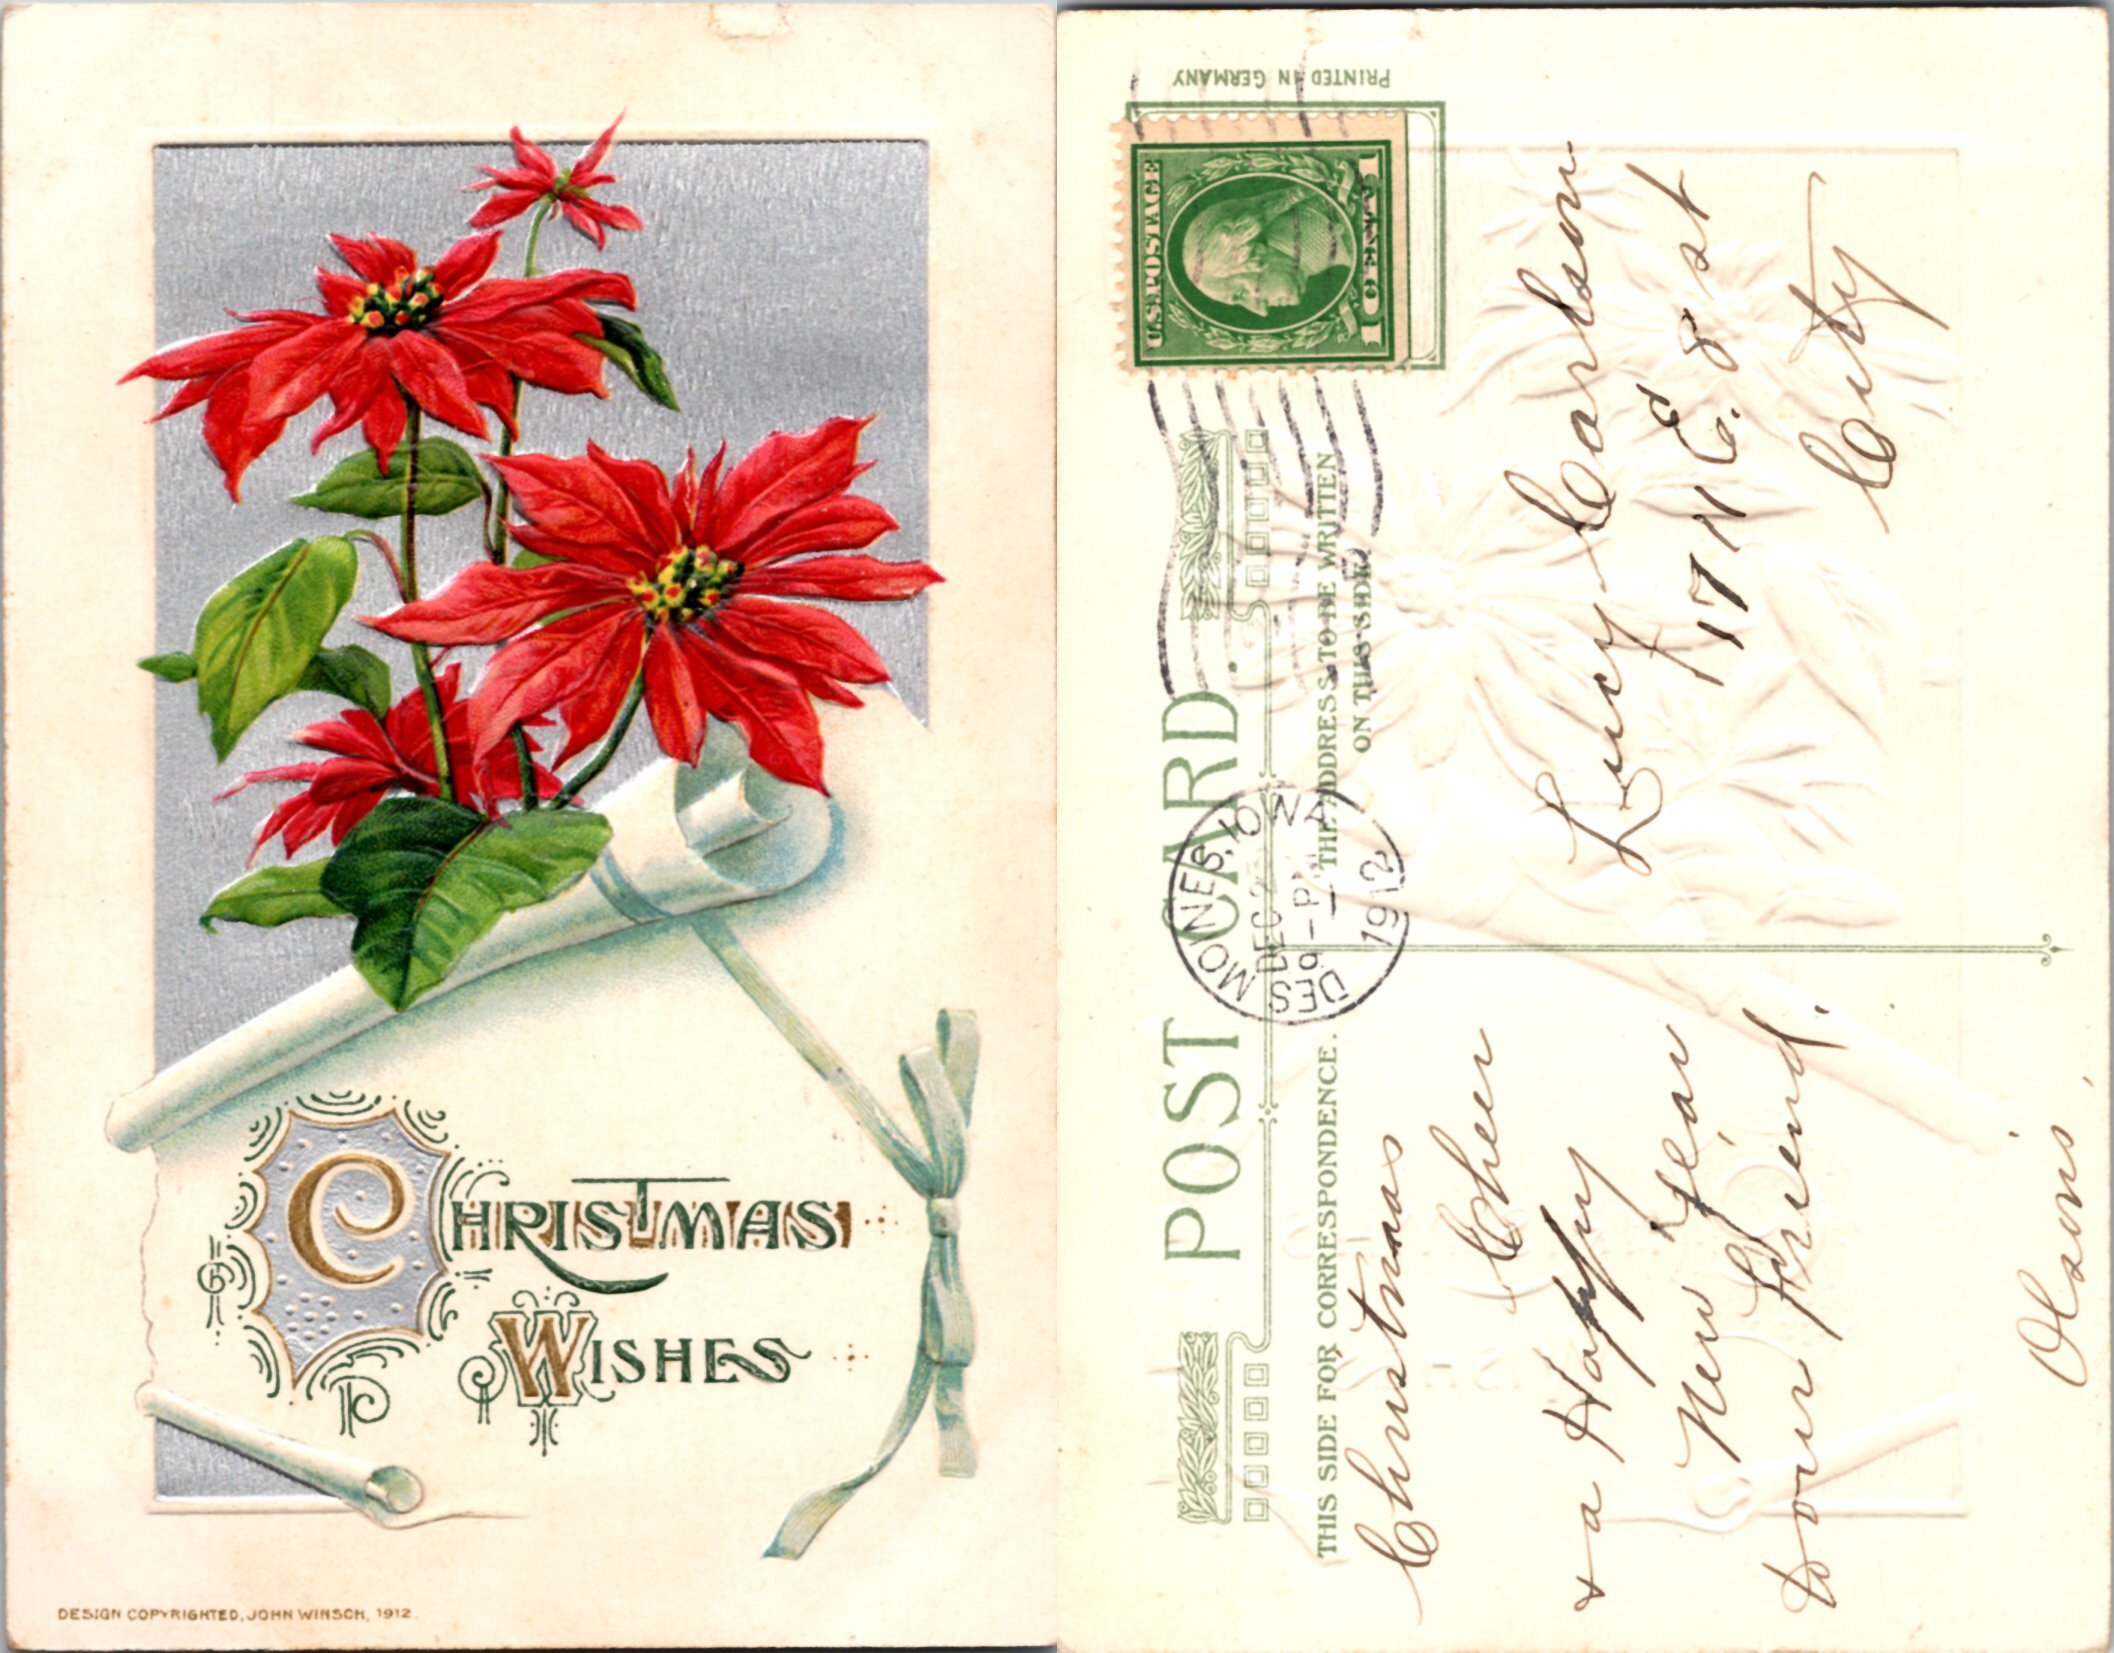 CHRISTMAS
WISHES
DESIGN COPYRIGHTED, JOHN WINSCH, 1912.
PRINTED IN GERMANY
U.S. POSTAGE
1 CENT 1
POST CARD.
THIS SIDE FOR CORRESPONDENCE.
THE ADDRESS TO BE WRITTEN
ON THIS SIDE
DES MOINES, IOWA
DEC 2
9 - P
1912
Christmas
Cheer
& a Happy
New Year
to our Friend.
Lucy Carlson
17 N E. 8 st
City